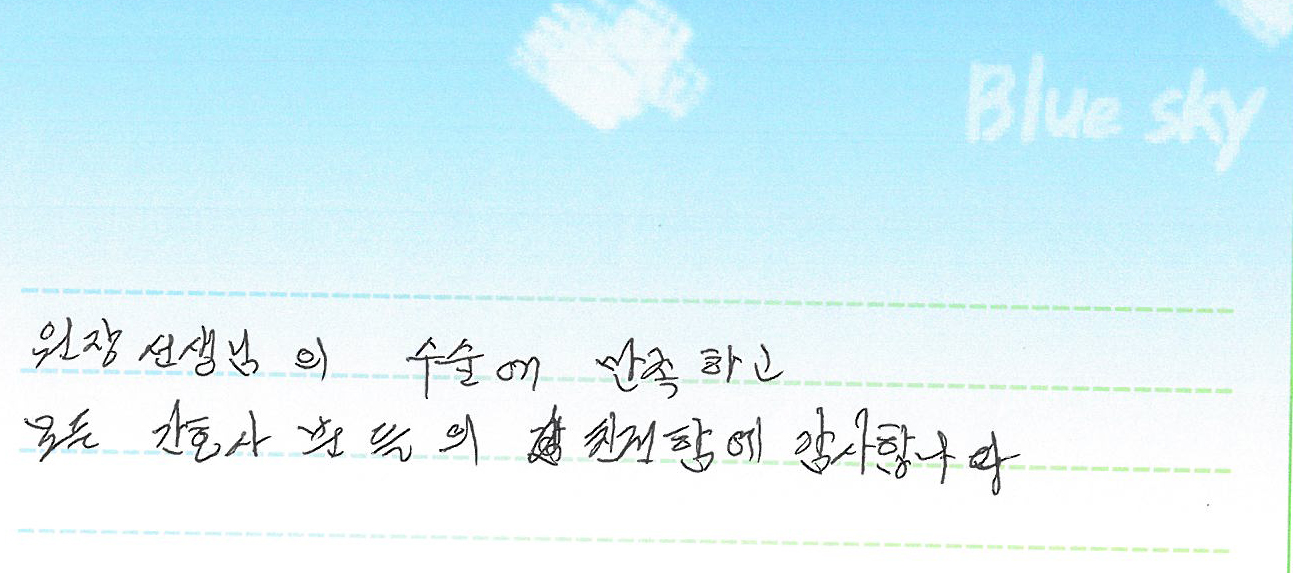 Blue sky
원장 선생님 의 수술에 만족 하고
모든 간호사 분 들 의 친절함에 감사합니다